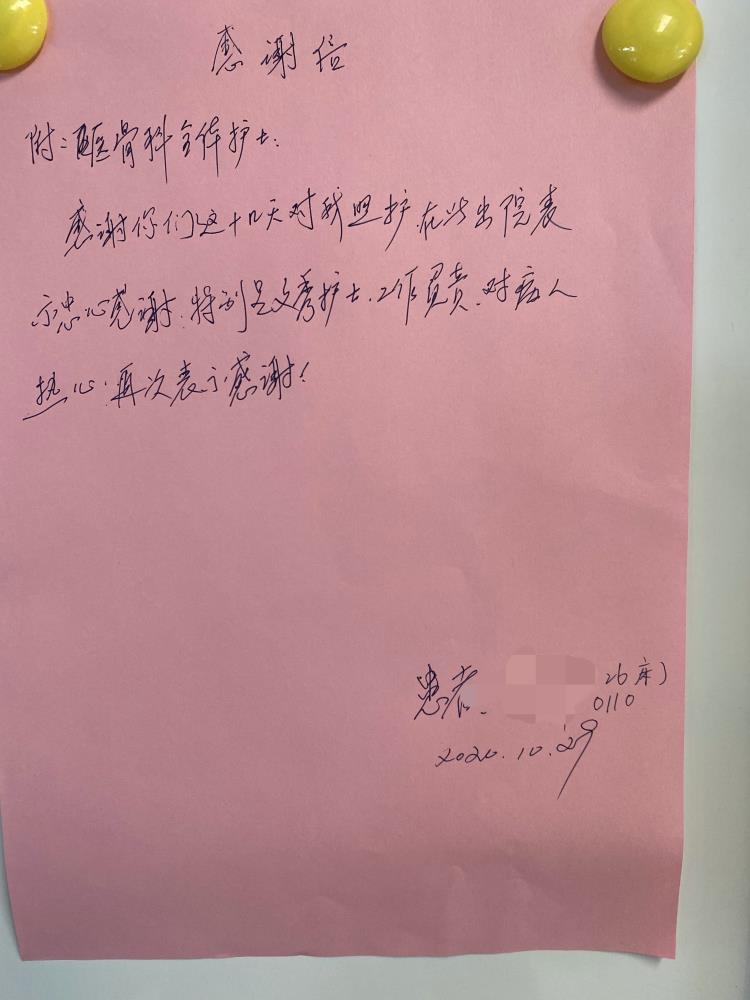 感谢信
附二医骨科全体护士:
感谢你们这十几天对我照护.在此出院表
示忠心感谢.特别是文秀护士.工作负责.对病人
热心.再次表示感谢!
患者、 26床)
0110
2020.10.29